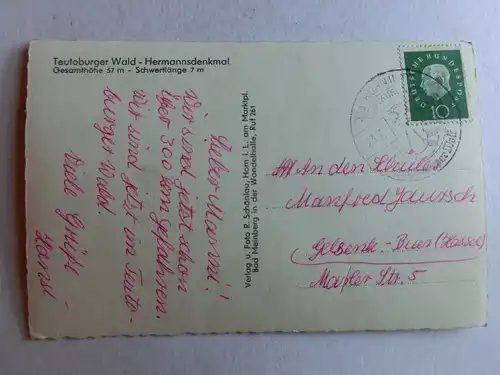 Teutoburger Wald - Hermannsdenkmal
Gesamthöhe 57 m - Schwertlänge 7 m
Lieber Manni!
Wir sind jetzt schon
über 300 km gefahren.
Wir sind jetzt im Teuto-
burger Wald.
Viele Grüße
Hansl
Verlag u. Foto R. Schönlau, Horn i. L. am Marktpl.
Bad Meinberg in der Wandelhalle, Ruf 261
DEUTSCHE BUNDESPOST
10
An den Schüler
Manfred
Gelsenk-Buer (Hassel)
Str. 5